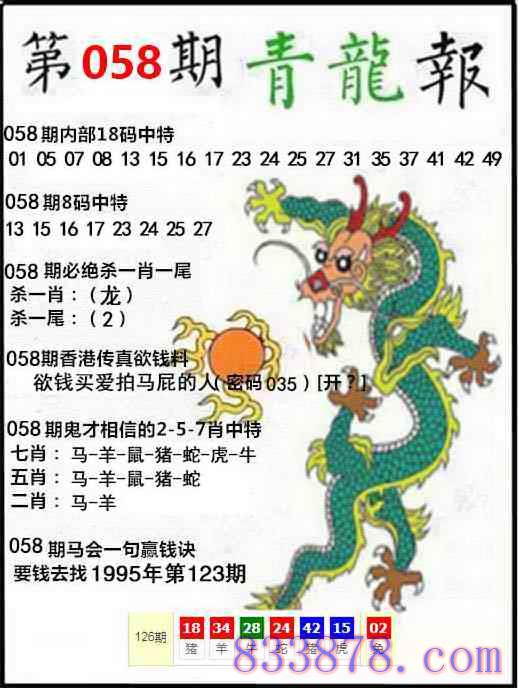 第058期青龍報
058期内部18码中特
01 05 07 08 13 15 16 17 23 24 25 27 31 35 37 41 42 49
058期8码中特
13 15 16 17 23 24 25 27
058 期必绝杀一肖一尾
杀一肖：（龙）
杀一尾：（2）
058期香港传真欲钱料
欲钱买爱拍马屁的人(密码035)[开？]
058期鬼才相信的2-5-7肖中特
七肖：马-羊-鼠-猪-蛇-虎-牛
五肖：马-羊-鼠-猪-蛇
二肖：马-羊
058 期马会一句赢钱诀
要钱去找1995年第123期
126期 18 34 28 24 42 15 02
猪 羊 牛 蛇 猪 虎 兔
833878.com